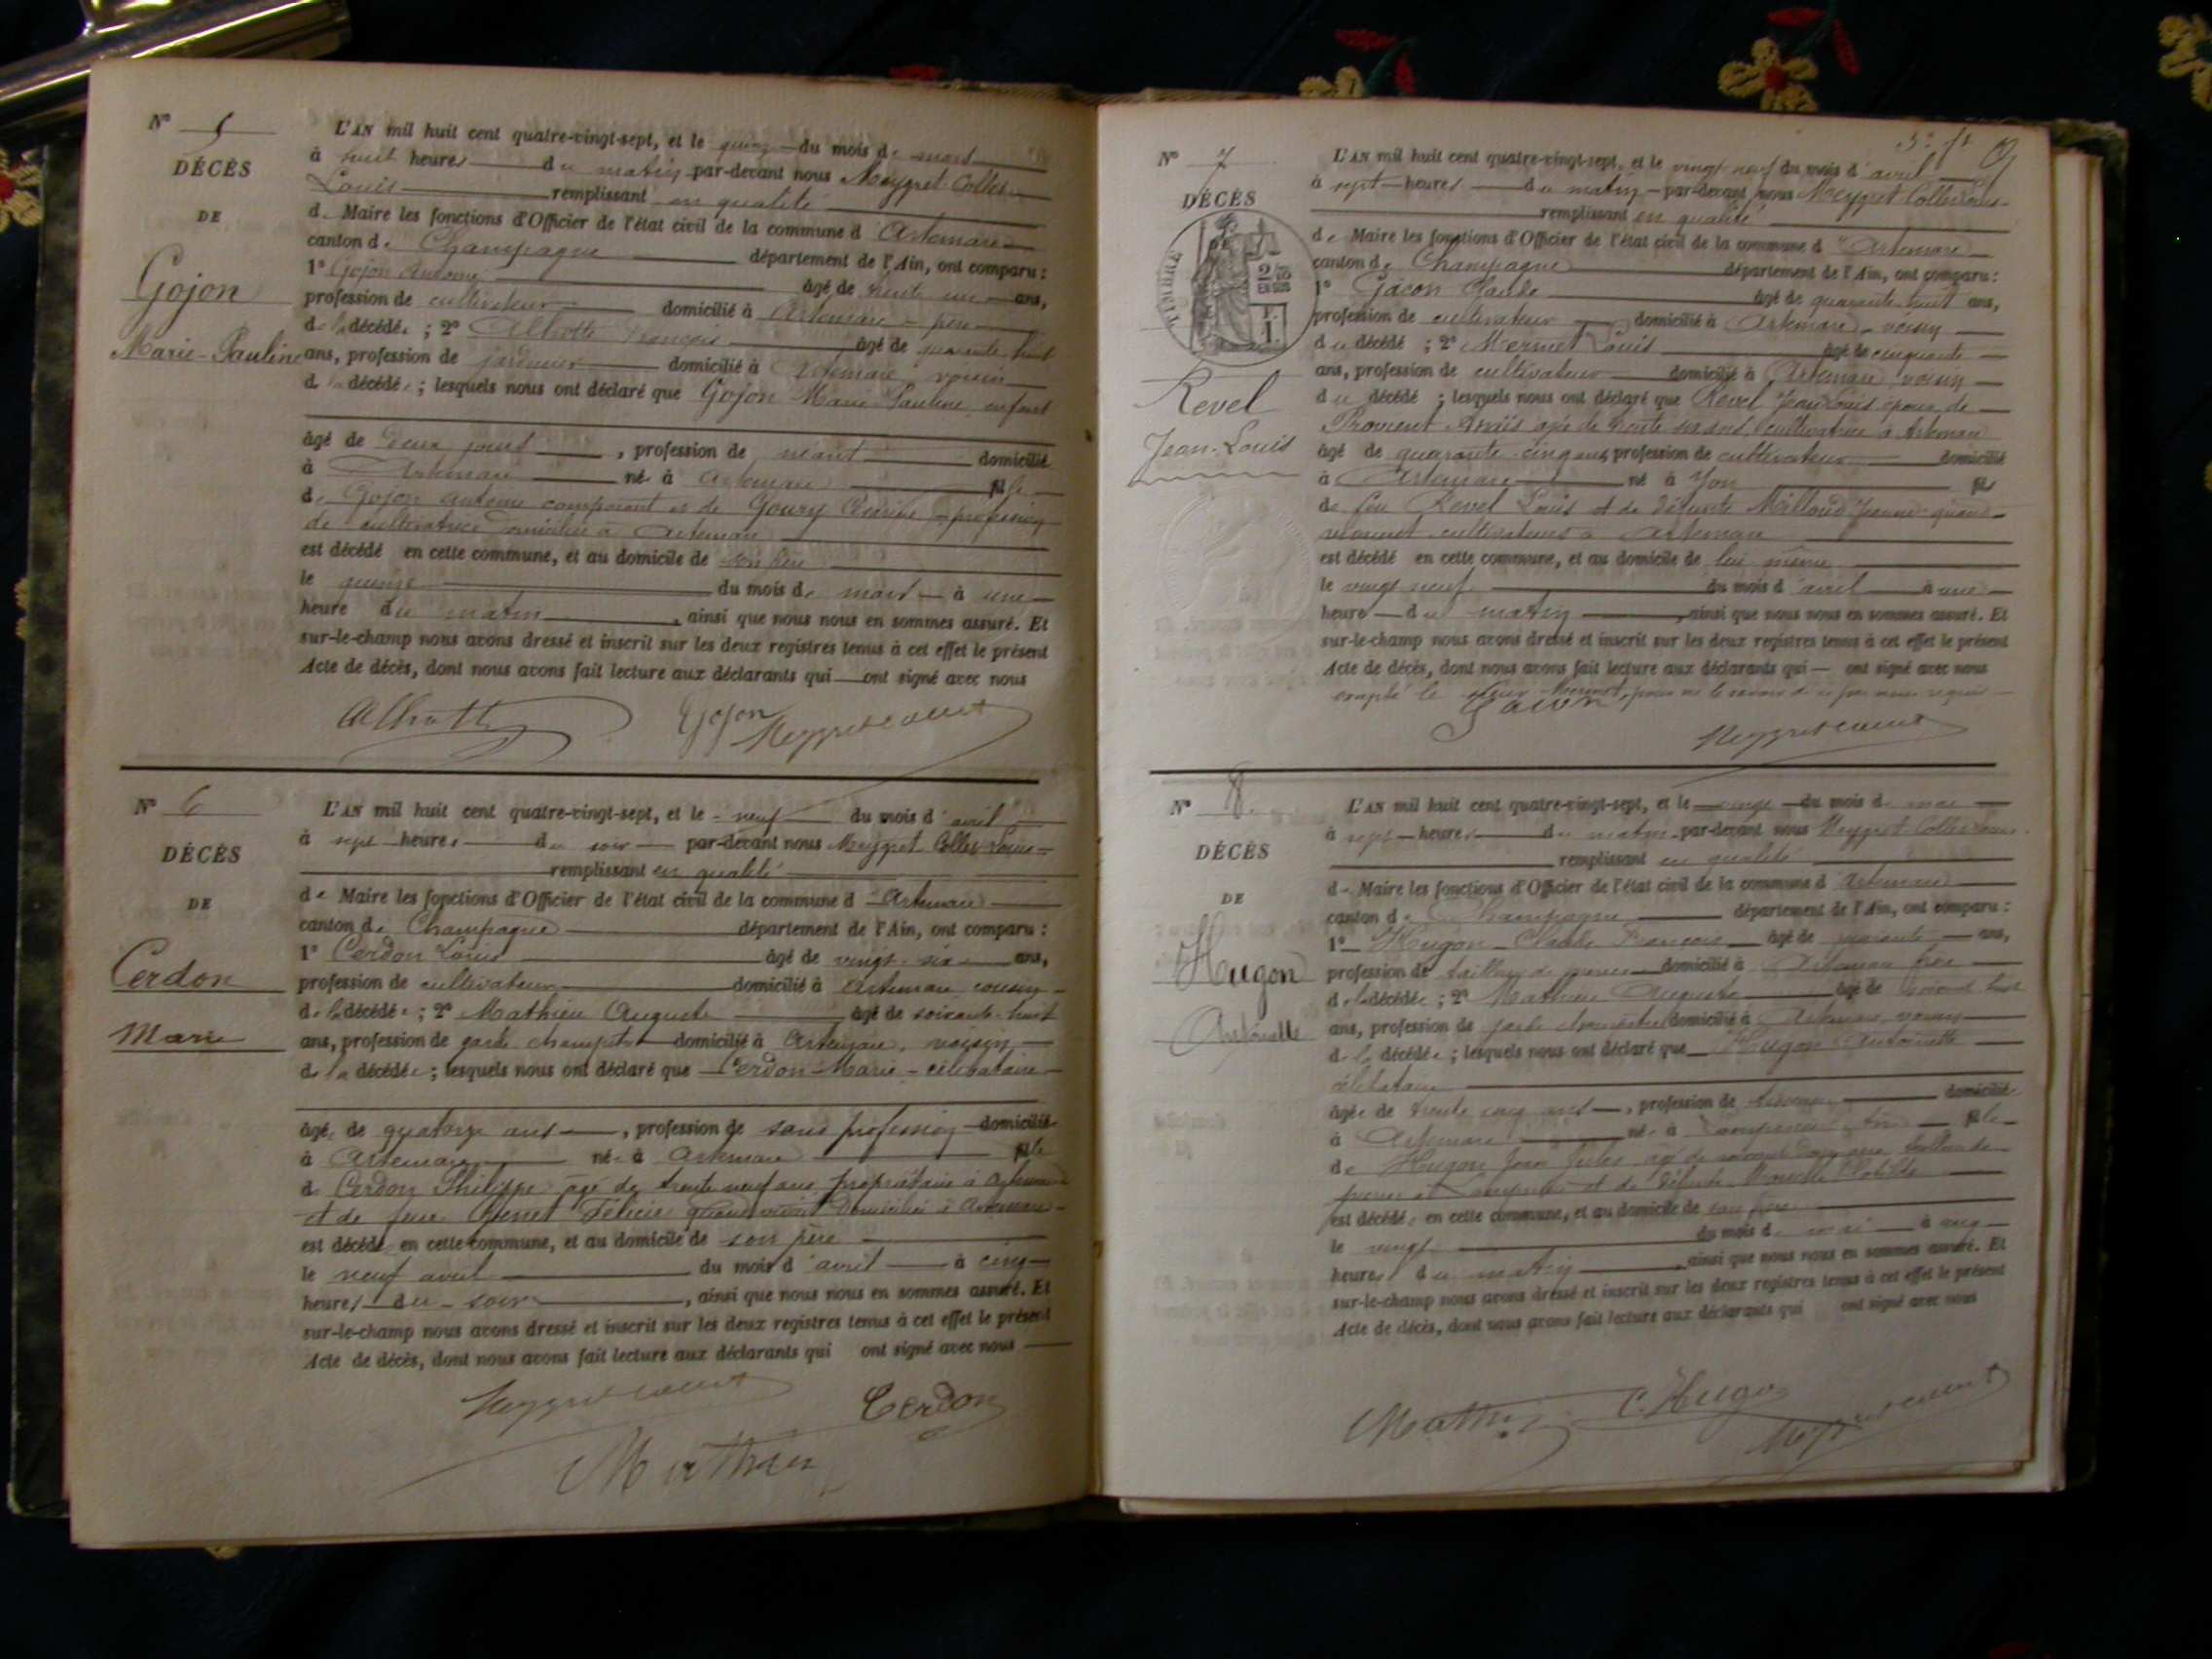 N° 5
DÉCÈS
DE
Gojon
Marie-Pauline
L'AN mil huit cent quatre-vingt-sept, et le quinze du mois de mars
à huit heures du matin par-devant nous Meygret-Collet
Louis remplissant en qualité
de Maire les fonctions d'Officier de l'état civil de la commune d'Artemare
canton de Champagne département de l'Ain, ont comparu :
1° Gojon Antoine âgé de trente un ans,
profession de cultivateur domicilié à Artemare père
de la décédée ; 2° Albotte François âgé de quarante huit
ans, profession de jardinier domicilié à Artemare voisin
de la décédée ; lesquels nous ont déclaré que Gojon Marie Pauline enfant
âgé de deux jours , profession de néant domicilié
à Artemare née à Artemare fille
de Gojon Antoine comparant et de Goury profession
de cultivatrice domiciliée à Artemare
est décédé en cette commune, et au domicile de son père
le quinze du mois de mars à une
heure du matin , ainsi que nous nous en sommes assuré. Et
sur-le-champ nous avons dressé et inscrit sur les deux registres tenus à cet effet le présent
Acte de décès, dont nous avons fait lecture aux déclarants qui ont signé avec nous
Gojon
N° 6
DÉCÈS
DE
Cerdon
Marie
L'AN mil huit cent quatre-vingt-sept, et le neuf du mois d'avril
à sept heures du soir par-devant nous Meygret Collet Louis
remplissant en qualité
de Maire les fonctions d'Officier de l'état civil de la commune d'Artemare
canton de Champagne département de l'Ain, ont comparu :
1° Cerdon Louis âgé de vingt-six ans,
profession de cultivateur domicilié à Artemare cousin
de la décédée ; 2° Mathieu Auguste âgé de soixante-huit
ans, profession de garde champêtre domicilié à Artemare, voisin
de la décédée ; lesquels nous ont déclaré que Cerdon Marie - célibataire
âgée de quatorze ans , profession de sans profession domiciliée
à Artemare née à Artemare fille
de Cerdon Philippe âgé de trente neuf ans propriétaire à Artemare
et de feue Félicie quand vivait domiciliée à Artemare
est décédée en cette commune, et au domicile de son père
le neuf avril du mois d'avril à cinq
heures du soir , ainsi que nous nous en sommes assuré. Et
sur-le-champ nous avons dressé et inscrit sur les deux registres tenus à cet effet le présent
Acte de décès, dont nous avons fait lecture aux déclarants qui ont signé avec nous
Cerdon
Mathieu
N° 7
DÉCÈS
TIMBRE
Revel
Jean-Louis
L'AN mil huit cent quatre-vingt-sept, et le vingt neuf du mois d'avril
à sept heures du matin par-devant nous Meygret Collet Louis
remplissant en qualité
de Maire les fonctions d'Officier de l'état civil de la commune d'Artemare
canton de Champagne département de l'Ain, ont comparu :
1° Gacon Claude âgé de quarante huit ans,
profession de cultivateur domicilié à Artemare voisin
du décédé ; 2° Mermet Louis âgé de cinquante
ans, profession de cultivateur domicilié à Artemare voisin
du décédé ; lesquels nous ont déclaré que Revel Jean Louis époux de
âgée de trente six ans, cultivatrice à Artemare
âgé de quarante-cinq ans, profession de cultivateur domicilié
à Artemare né à Yon fils
de feu Revel Louis et de défunte Milloud Jeanne quand
vivaient cultivateurs à Artemare
est décédé en cette commune, et au domicile de lui même
le vingt neuf du mois d'avril à une
heure du matin , ainsi que nous nous en sommes assuré. Et
sur-le-champ nous avons dressé et inscrit sur les deux registres tenus à cet effet le présent
Acte de décès, dont nous avons fait lecture aux déclarants qui ont signé avec nous
excepté le sieur Mermet, pour ne le savoir
Gacon
N° 8
DÉCÈS
DE
Hugon
Antoinette
L'AN mil huit cent quatre-vingt-sept, et le vingt du mois de mai
à sept heures du matin par-devant nous Meygret Collet Louis
remplissant en qualité
de Maire les fonctions d'Officier de l'état civil de la commune d'Artemare
canton de Champagne département de l'Ain, ont comparu :
1° Hugon Claude François âgé de quarante ans,
profession de tailleur de pierres domicilié à Artemare frère
de la décédée ; 2° Mathieu Auguste âgé de soixante huit
ans, profession de garde champêtre domicilié à Artemare voisin
de la décédée ; lesquels nous ont déclaré que Hugon Antoinette
célibataire
âgée de trente cinq ans , profession de domiciliée
à Artemare née à fille
de Hugon Jean âgé de tailleur de
pierres et de défunte
est décédée en cette commune, et au domicile de son frère
le vingt du mois de mai à cinq
heures du matin , ainsi que nous nous en sommes assuré. Et
sur-le-champ nous avons dressé et inscrit sur les deux registres tenus à cet effet le présent
Acte de décès, dont nous avons fait lecture aux déclarants qui ont signé avec nous
Mathieu C. Hugon